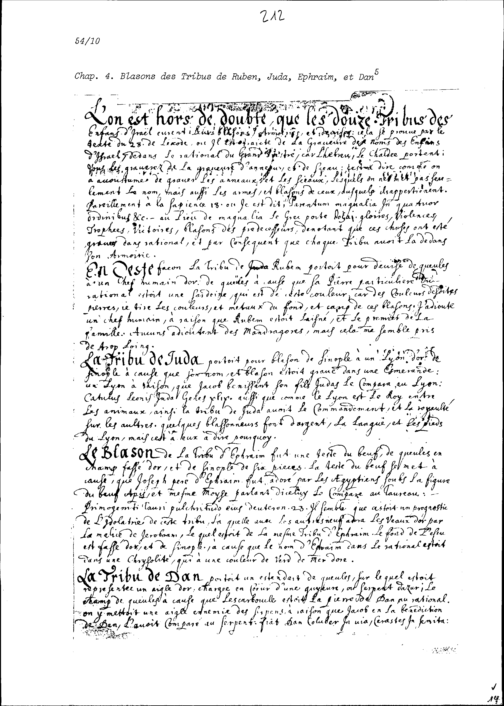 212
54/10
Chap. 4. Blasons des Tribus de Ruben, Juda, Ephraim, et Dan5
L'on est hors de doubte, que les douze Tribus des
Enfans d'Israel eurent leurs blasons et la se preuve par le
texte du 28 de l'exode, ou Il est de la Graveure des noms des Enfans
d'Israel dedans le rational du Grand le Chaldee portent:
graveure d'anneau, et de sceau comme on
a accoustumé de graver les anneaux, et les sceaux, esquels on pas seu-
lement le nom, mais aussi les armes, et blasons de ceux, ausquels Ils appartienent.
Pareillement a la sapience 18. ou Il est dit; Parentum magnalia In quatuor
ordinibus &c.- au lieu de magnalia le Grec porte gloires,
Trophees, Victoires, blasons des predecesseurs, denotant que ces choses ont esté
graves dans rational, et par Consequent que chaque Tribu avoit la dedans
son Armoirie.
En Ceste facon la Tribu de Ruben portoit pour devise de gueules
a un chef humain dor. de gueules a cause que sa Pierre particuliere
rational estoit une sardoine, qui est de ceste couleur, car des Couleurs desdictes
pierres, ie tire les couleurs, et metaux du fond, et camp de ces blasons. J'adioute
un chef humain, a raison que Ruben estoit laisné, et le premier de La
famille. Aucuns adioutent des Mandragores, mais cela me semble pris
de trop loing.
La Tribu de Juda portoit pour blason de sinople à un Lyon dor. de
sinople à cause que son nom, et blason estoit gravé dans une Esmeraude:
un Lyon à raison, que Jacob benissant son fils Judas le Compara au Lyon:
Catulus Leonis Juda Genes 49. aussi que comme le Lyon est Le Roy entre
Les animaux, ainsi la tribu de Juda auroit Le Commandement, et La royauté
sur les aultres. quelques blassonneurs font d'argent, La Langue, et Les pieds
du Lyon, mais c'est à eux a dire pourquoy.
Le Blason de La Tribu d'Ephraim fut une teste du beuf, de gueules en
champ fassé dor, et de sinople de six pieces. La teste du beuf se met à
cause, que Joseph pere d'Ephraim fut adoré par Les Ægyptiens soubs La figure
du beuf Apis, et mesme Moyse parlant d'iceluy Le Compare au taureau:
Primogeniti Tauri pulchritudo eius deuteron. 23. Il semble que c'estoit un prognostic
de L'idolatrie de ceste tribu, La quelle avec les autres neuf adora les Veaux dor par
La malice de Jeroboam, le quel estoit de La mesme Tribu d'Ephraim. Le fond de l'escu
est fassé dor, et de sinople, à cause que le nom d'Ephraim dans le rational estoit
dans une Chrysolite, qui a une couleur de verd de mer dorée.
La Tribu de Dan portoit un estendart de gueules, sur le quel estoit
representee un aigle dor, chargee en cœur d'une guyeure, ou serpent d'azur; Le
champ de gueules à cause que Lescarboucle estoit La pierre de Dan au rational.
on y mettoit une aigle ennemie des serpens, à raison que Jacob en La benediction
de Dan, l'avoit comparé au serpent: fiat Dan Coluber in via, Cerastes in semita:
14